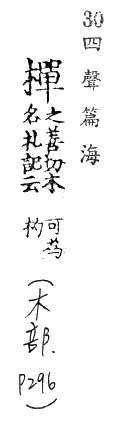 30 四聲篇海
樿
之善切木
名礼記云
可為
杓
(木部. P296)